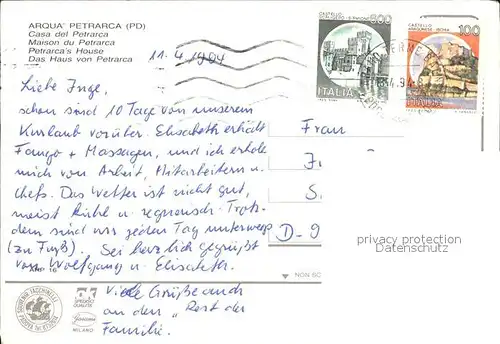 ARQUA' PETRARCA (PD)
Casa del Petrarca
Maison du Petrarca
Petrarca's House
Das Haus von Petrarca
11.4.1994
500
ITALIA
CASTELLO
ARAGONESE - ISCHIA
100
ITALIA
TERME
4.94
Liebe Inge,
schon sind 10 Tage von unserem
Kurlaub vorüber. Elisabeth erhält
Fango + Massagen, und ich erhole
mich von Arbeit, Mitarbeitern u.
Chefs. Das Wetter ist nicht gut,
meist kühl u. regnerisch. Trotz-
dem sind wir jeden Tag unterwegs
(zu Fuß). Sei herzlich gegrüßt
von Wolfgang u. Elisabeth.
Viele Grüße auch
an den "Rest der
Familie.
Frau
S
D-9
privacy protection
Datenschutz
NON SC
16
MILANO